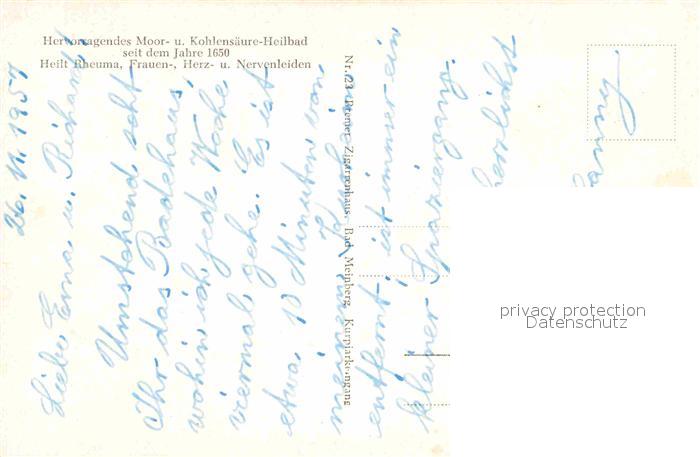 Hervorragendes Moor- u. Kohlensäure-Heilbad
seit dem Jahre 1650
Heilt Rheuma, Frauen-, Herz- u. Nervenleiden
Nr. 23 Bremer Zigarrenhaus, Bad Meinberg, Kurparkeingang
26.11.1957
Liebe Erna u. Richard!
Umstehend seht
Ihr das Badehaus,
wohin ich jede Woche
viermal gehe. Es ist
etwa 10 Minuten von
meinem
entfernt, ist immer ein
kleiner Spaziergang.
Herzlichst
privacy protection
Datenschutz